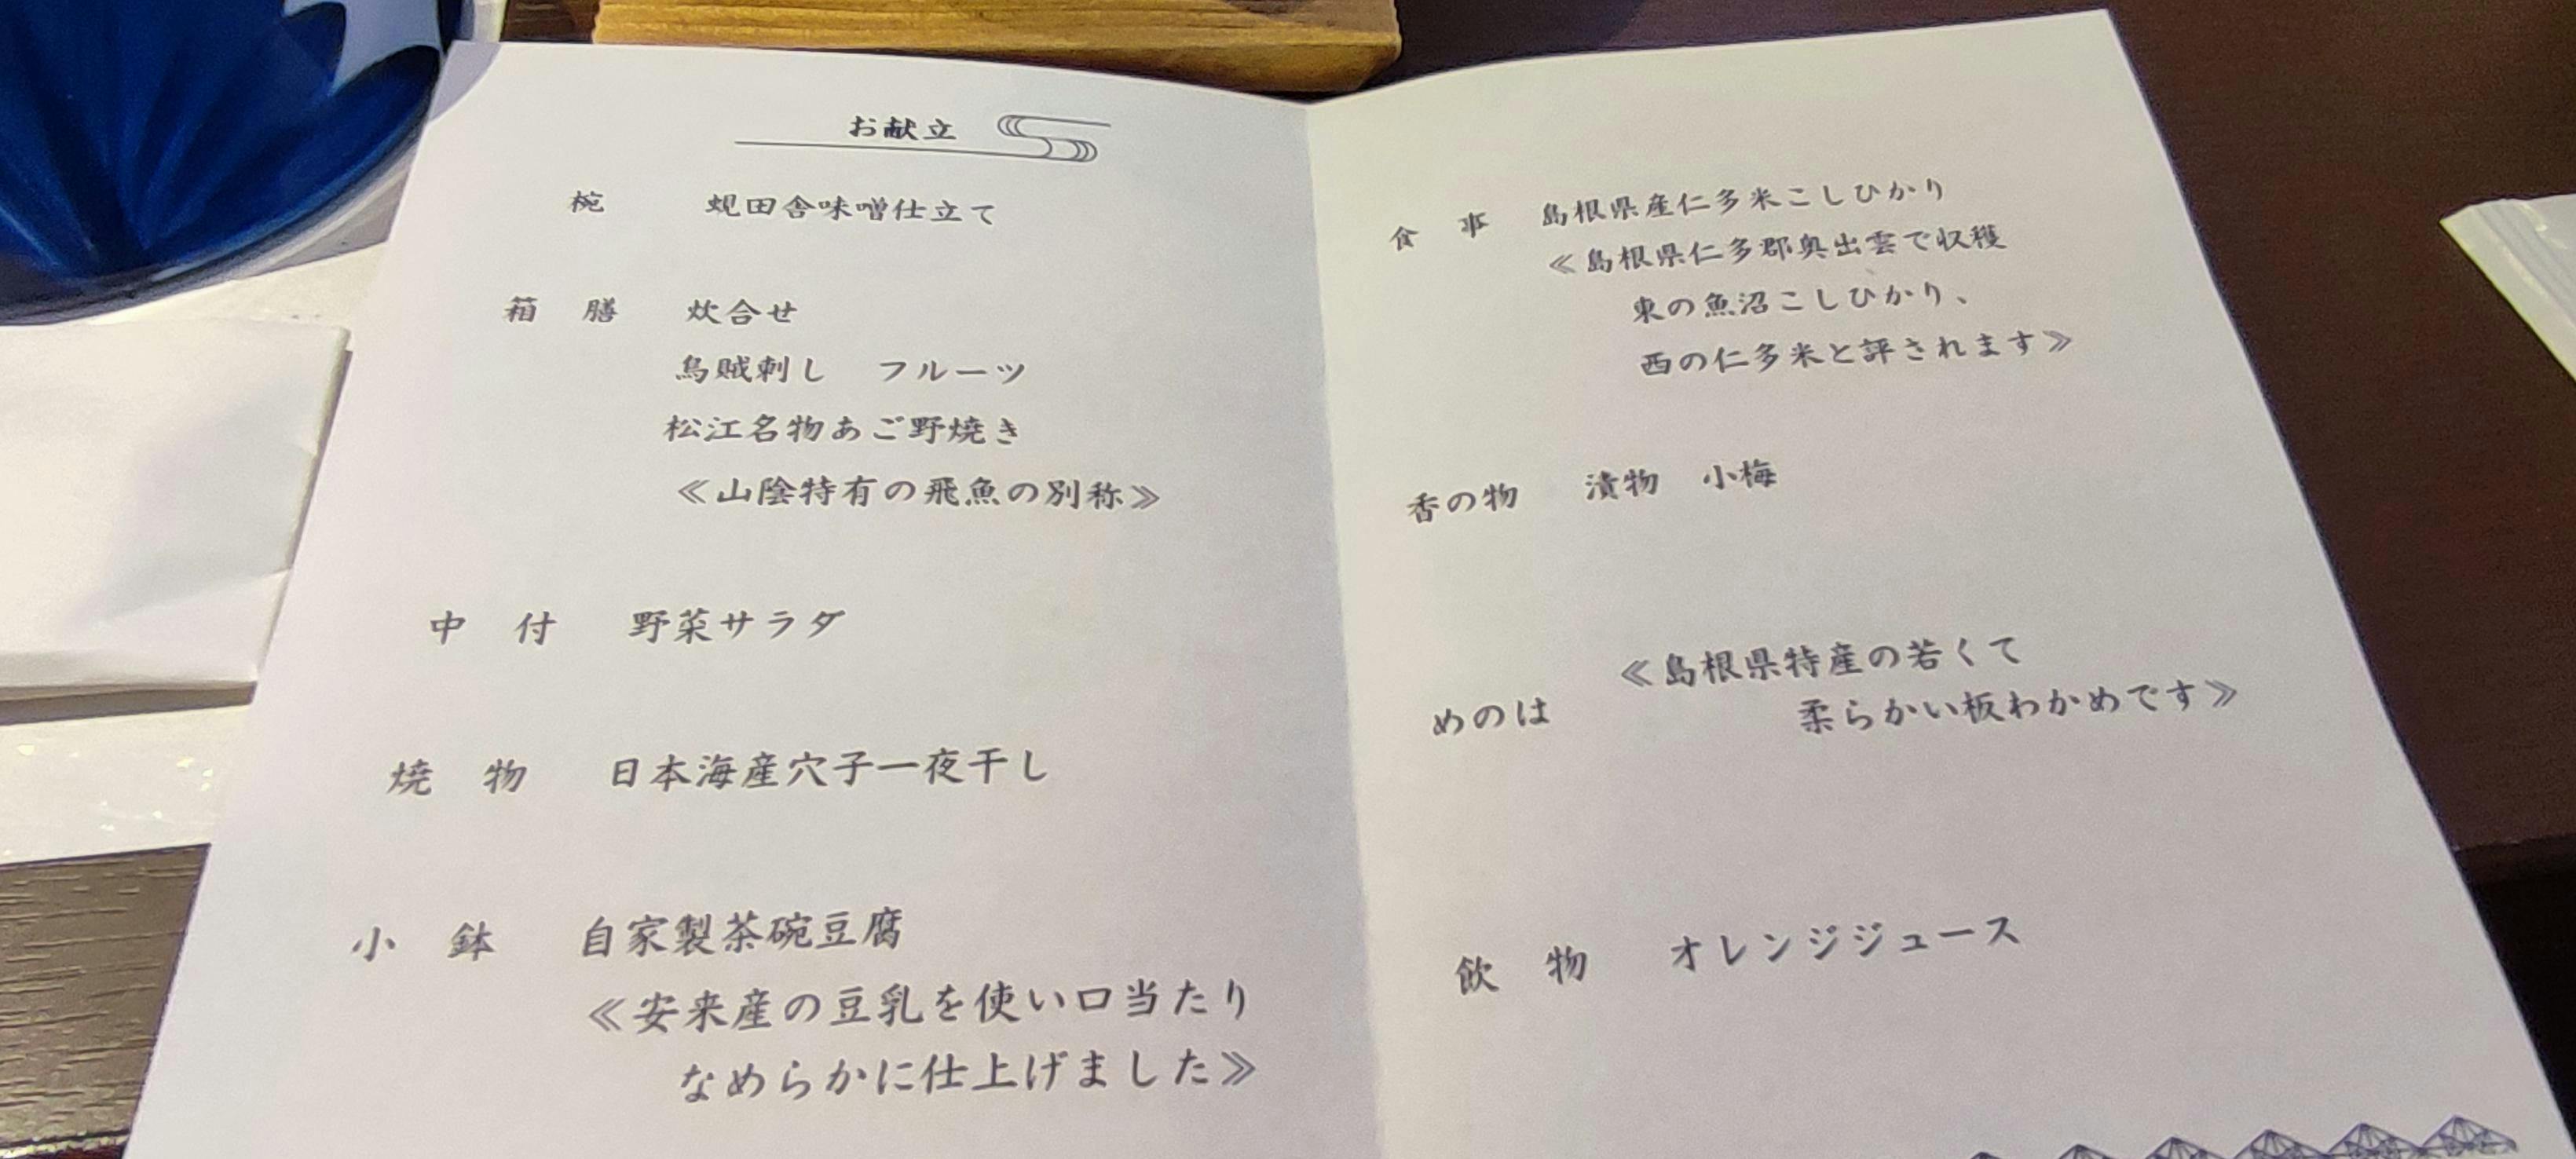 お献立
椀 蜆田舎味噌仕立て
箱 膳 炊合せ
烏賊刺し フルーツ
松江名物あご野焼き
≪山陰特有の飛魚の別称≫
中 付 野菜サラダ
焼 物 日本海産穴子一夜干し
小 鉢 自家製茶碗豆腐
≪安来産の豆乳を使い口当たり
なめらかに仕上げました≫
食 事 島根県産仁多米こしひかり
≪島根県仁多郡奥出雲で収穫
東の魚沼こしひかり、
西の仁多米と評されます≫
香の物 漬物 小梅
めのは ≪島根県特産の若くて
柔らかい板わかめです≫
飲 物 オレンジジュース